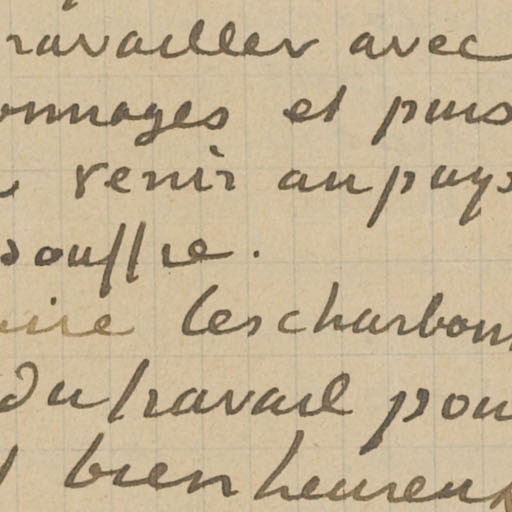 ravailler avec
onnages et puis
venir au pays
souffre.
oire les charbons
du travail pou
bien heureux